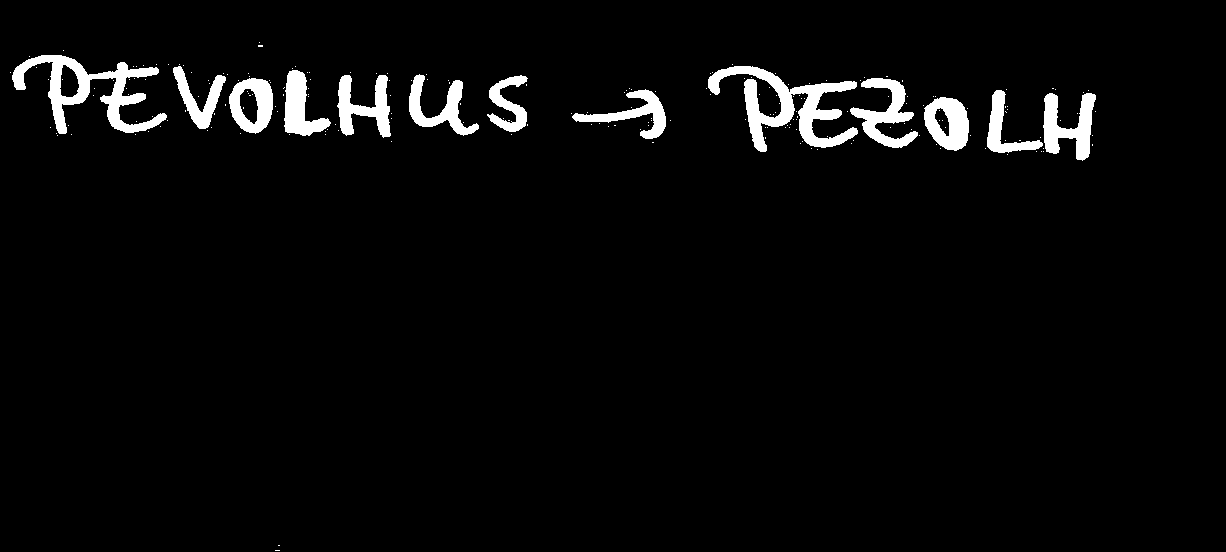 PEVOLHUS → PEZOLH